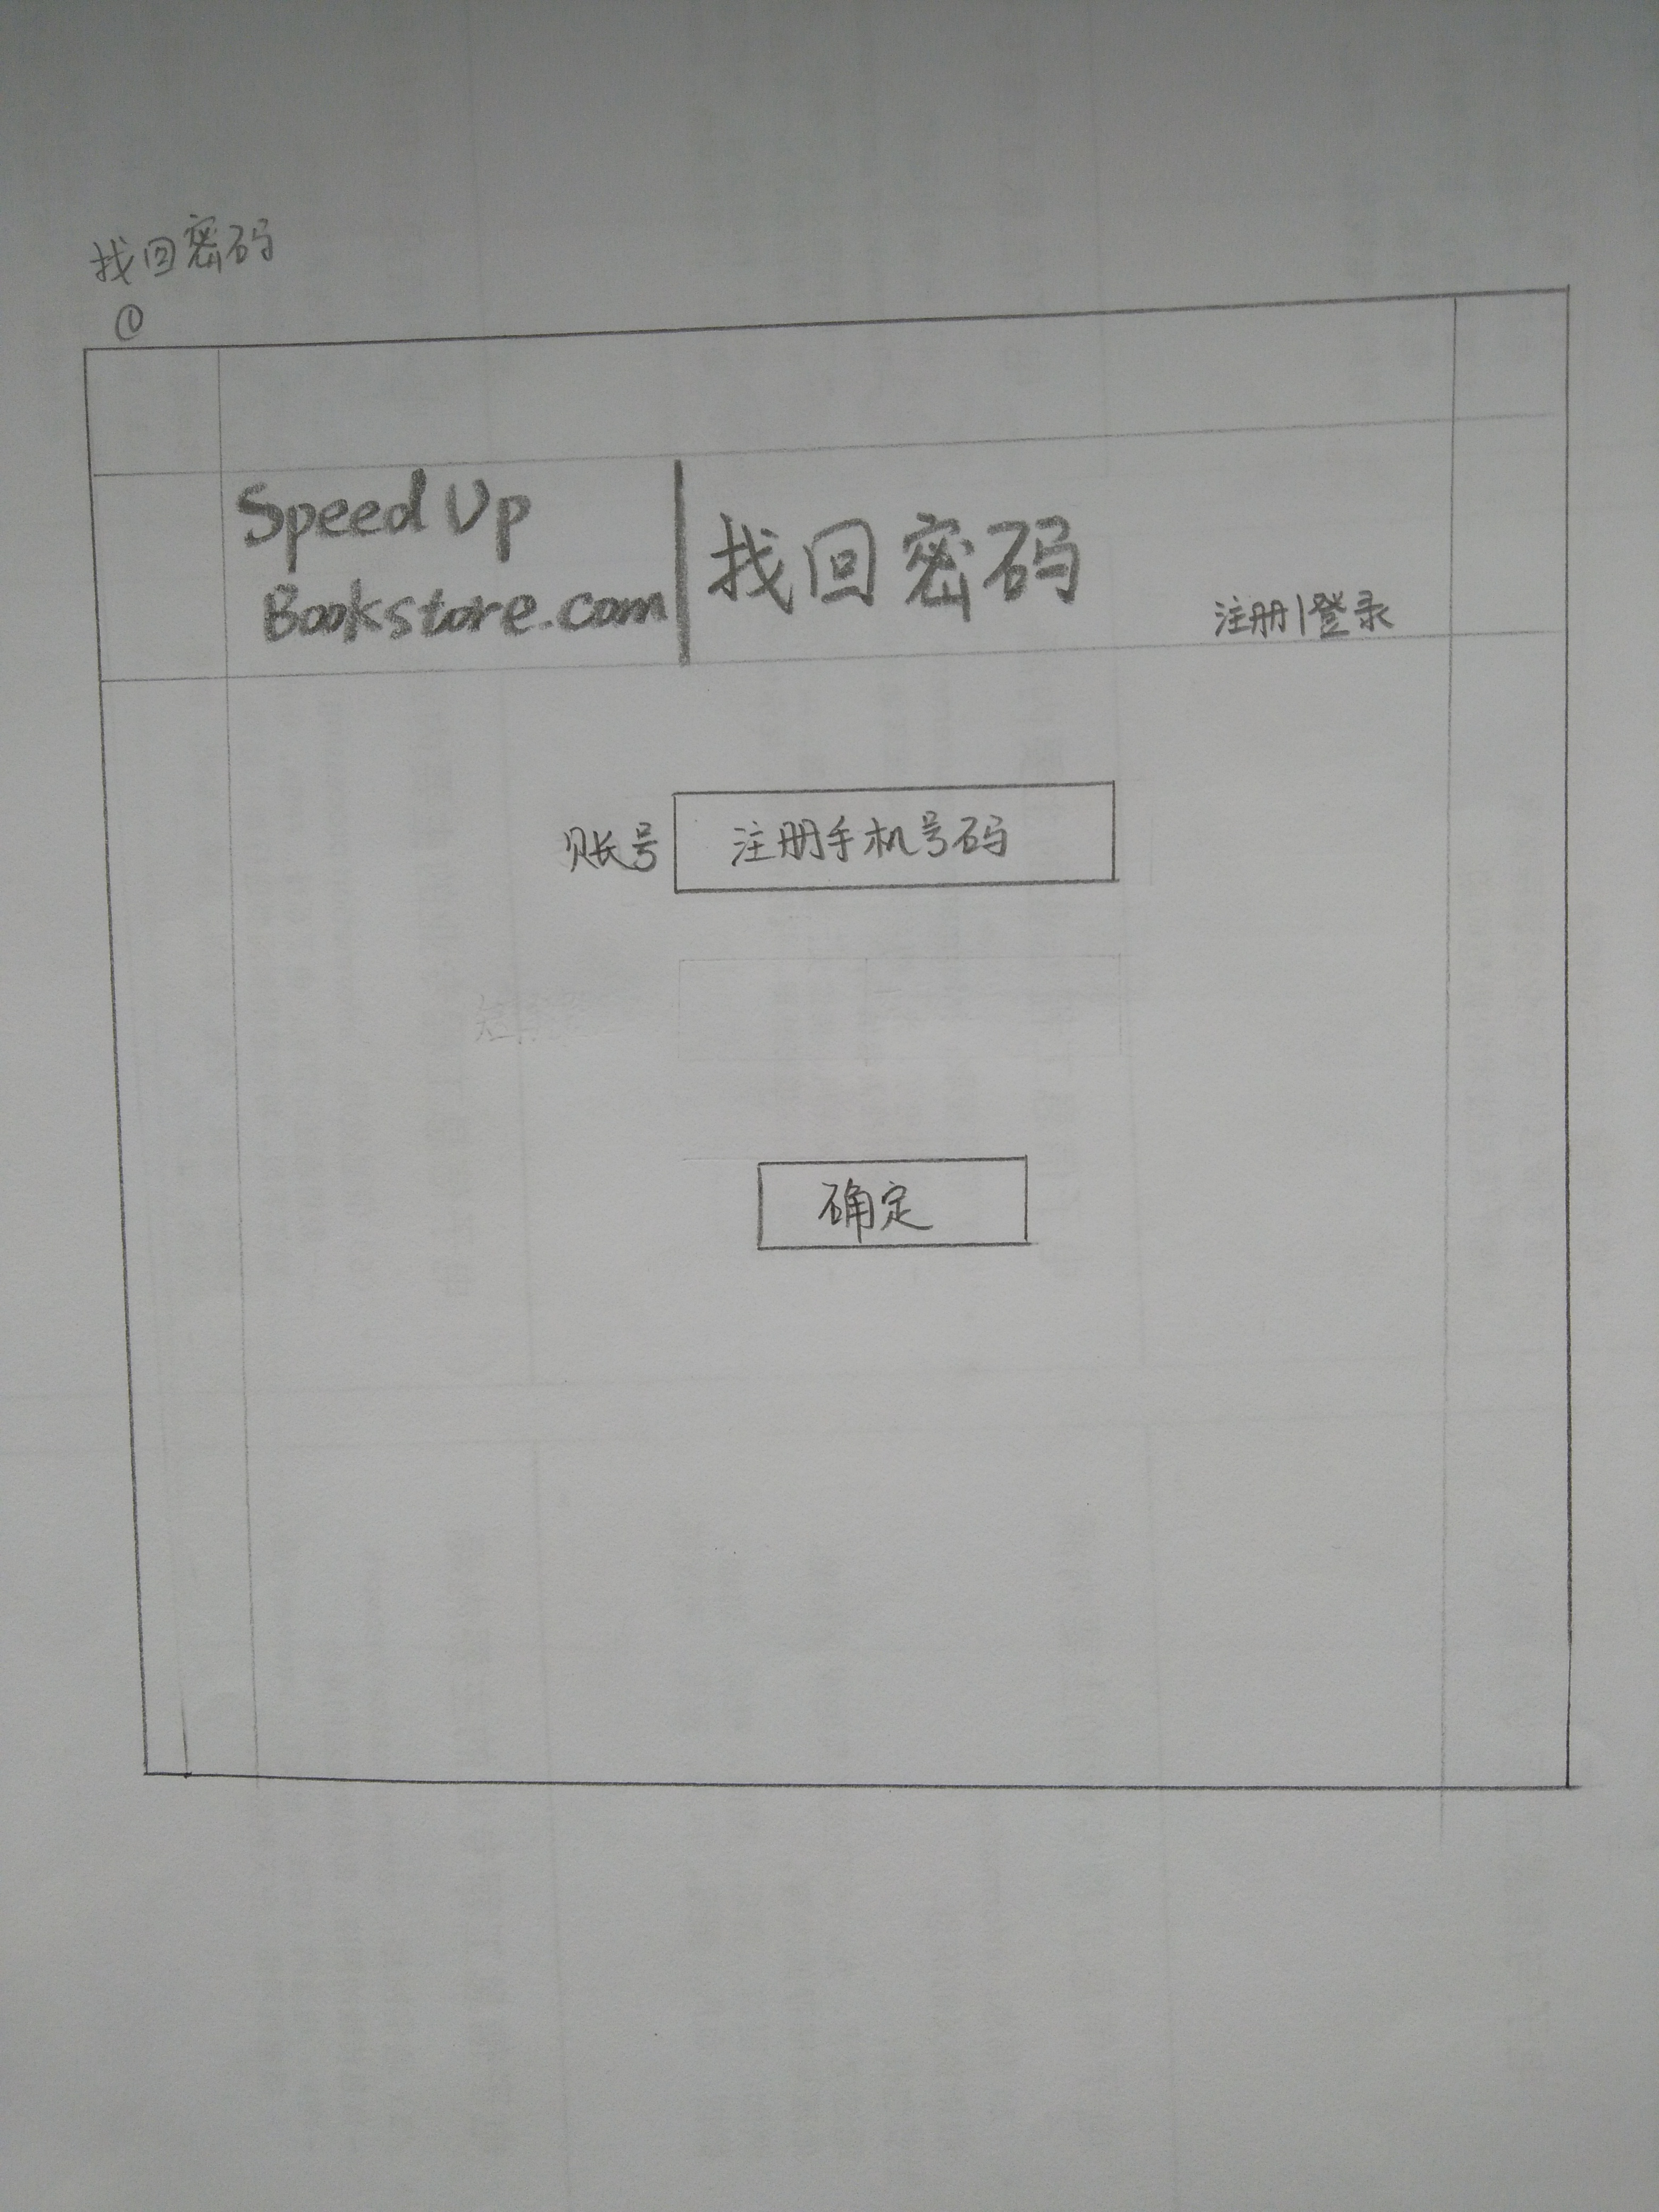 找回密码
①
Speed Up
Bookstore.com
找回密码
注册|登录
账号 注册手机号码
确定